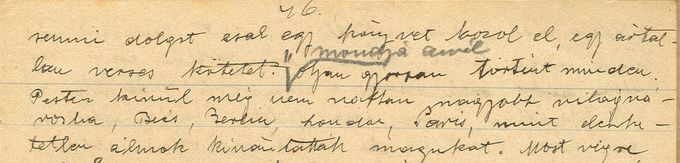 46.
semmi dolgot csak egy könyvet hozol el, egy ártat-
lan verses kötetet. " mondja amel
olyan gyorsan történt minden.
Pesten kívül még nem voltam nagyobb világvá-
rosba, Bécs, Berlin, London, Páris, mint elérhe-
tetlen álmok kínáltattak magukat. Most végre